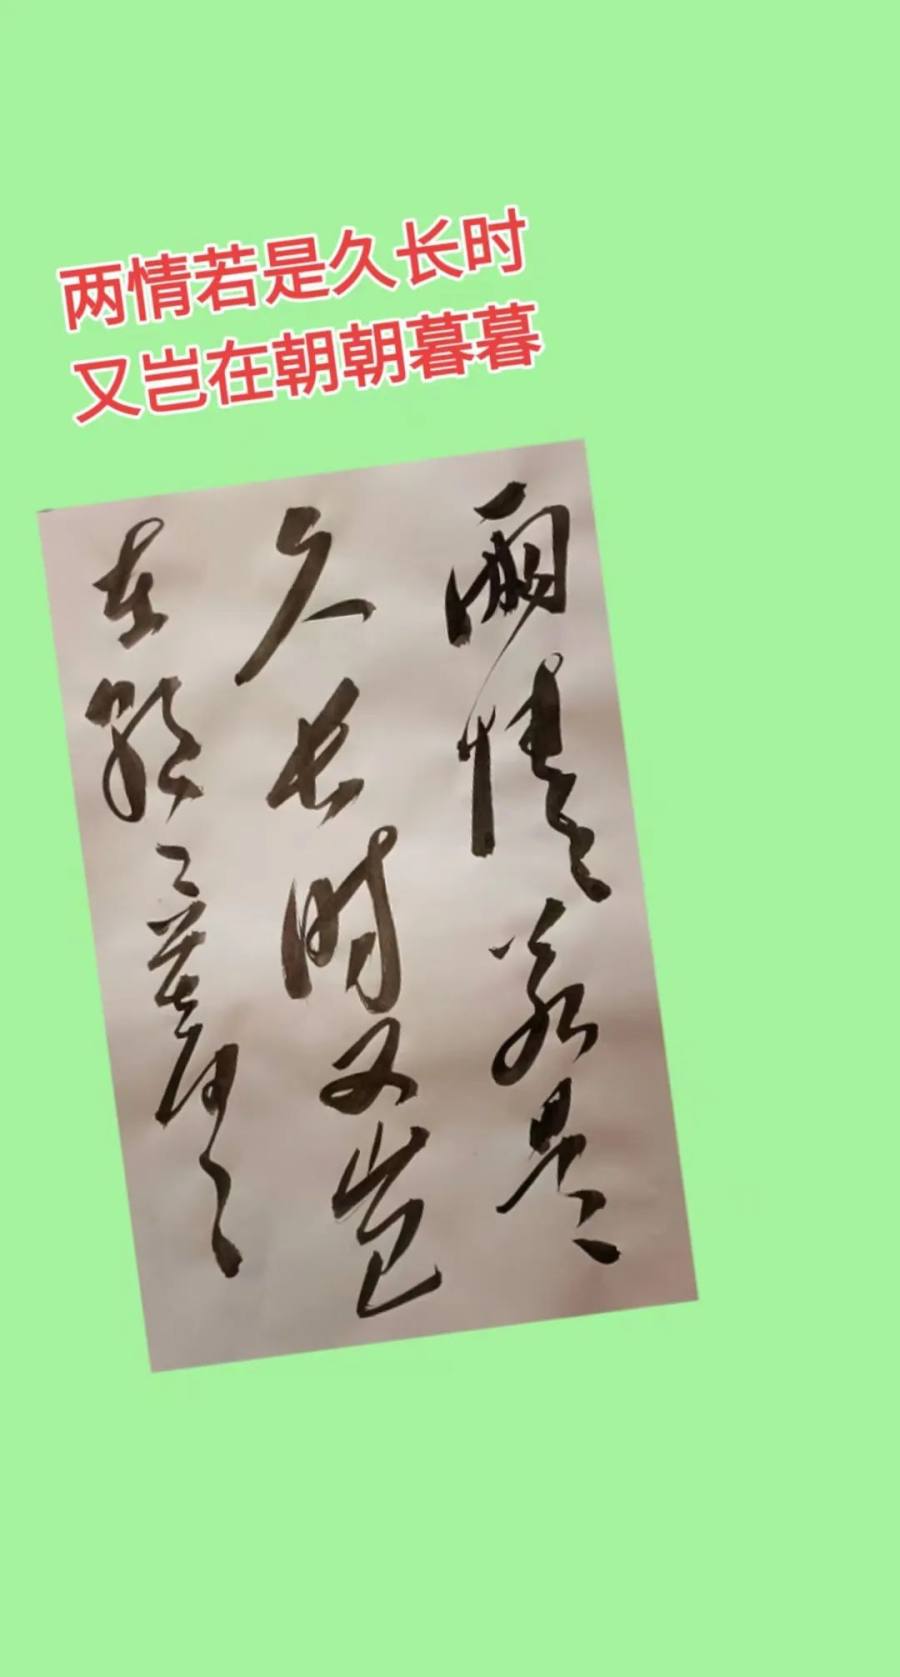 两情若是久长时
又岂在朝朝暮暮
兩情若是
久长时又岂
在朝〻暮〻